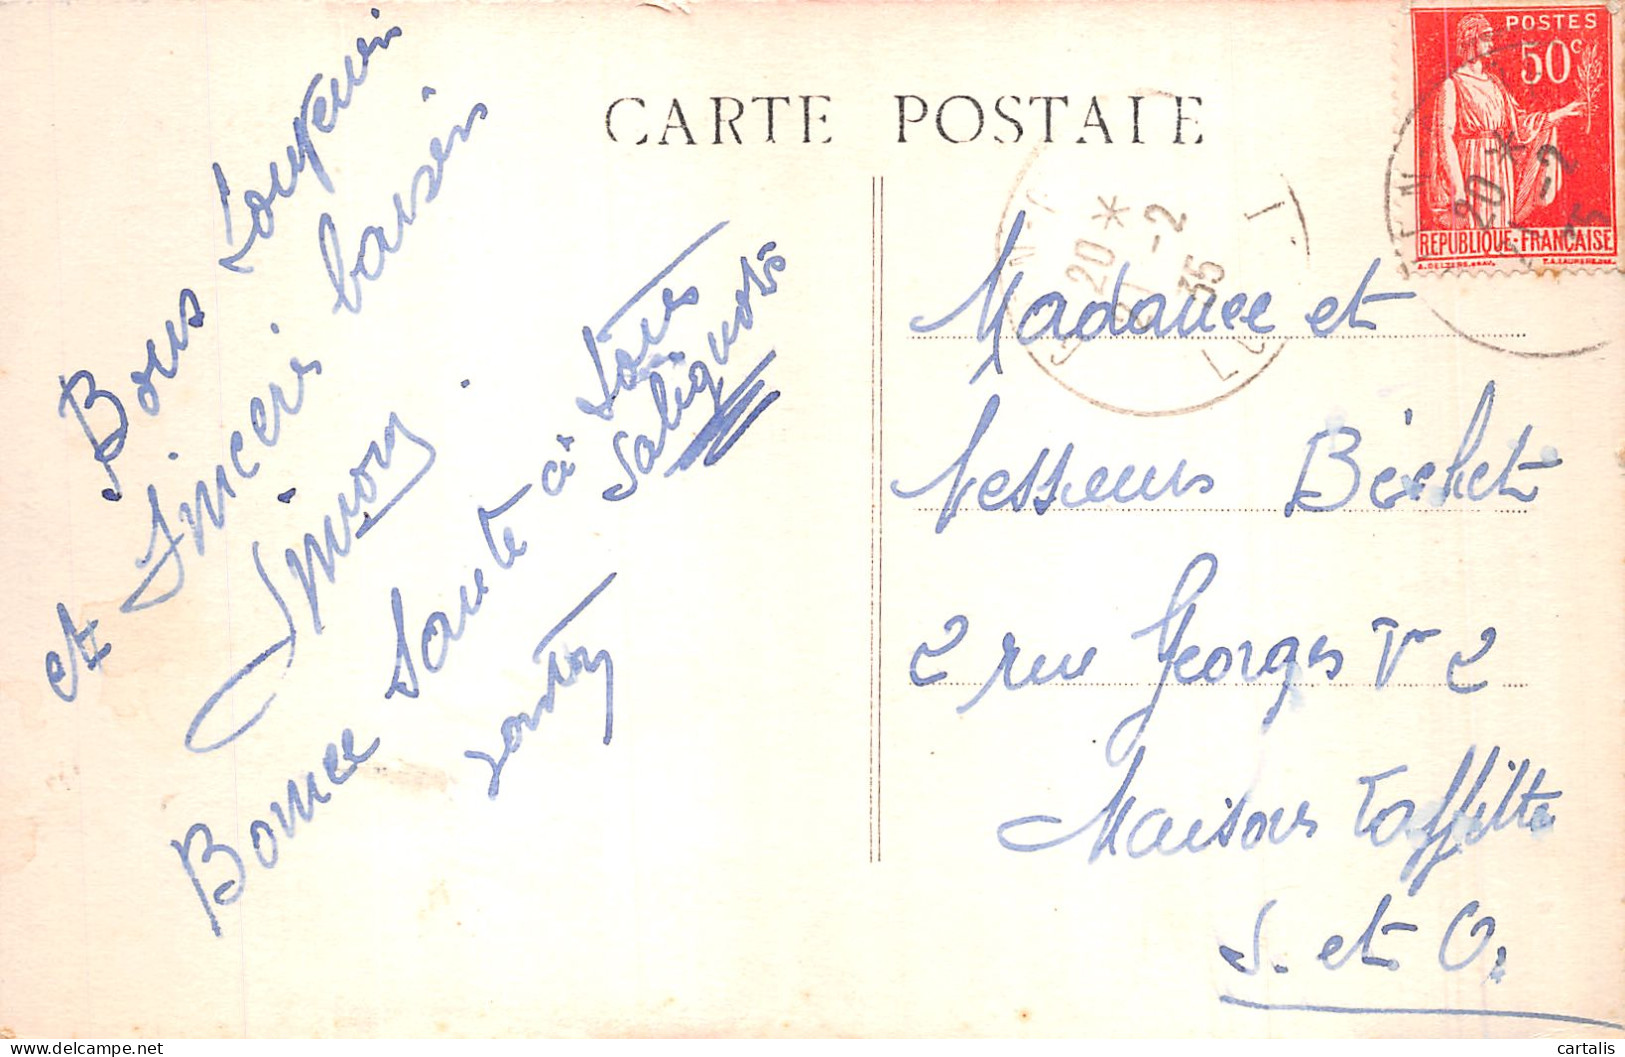 CARTE POSTALE
POSTES
50c
REPUBLIQUE·FRANÇAISE
20 *
21 -2
35
20 *
-2
35
Bons Souvenirs
et Sincères baisers
Simon
Bonne Santé à tous
Madame et
Messieurs Béchet
2 rue Georges V 2
Maisons Laffitte
S. et O.
cartalis